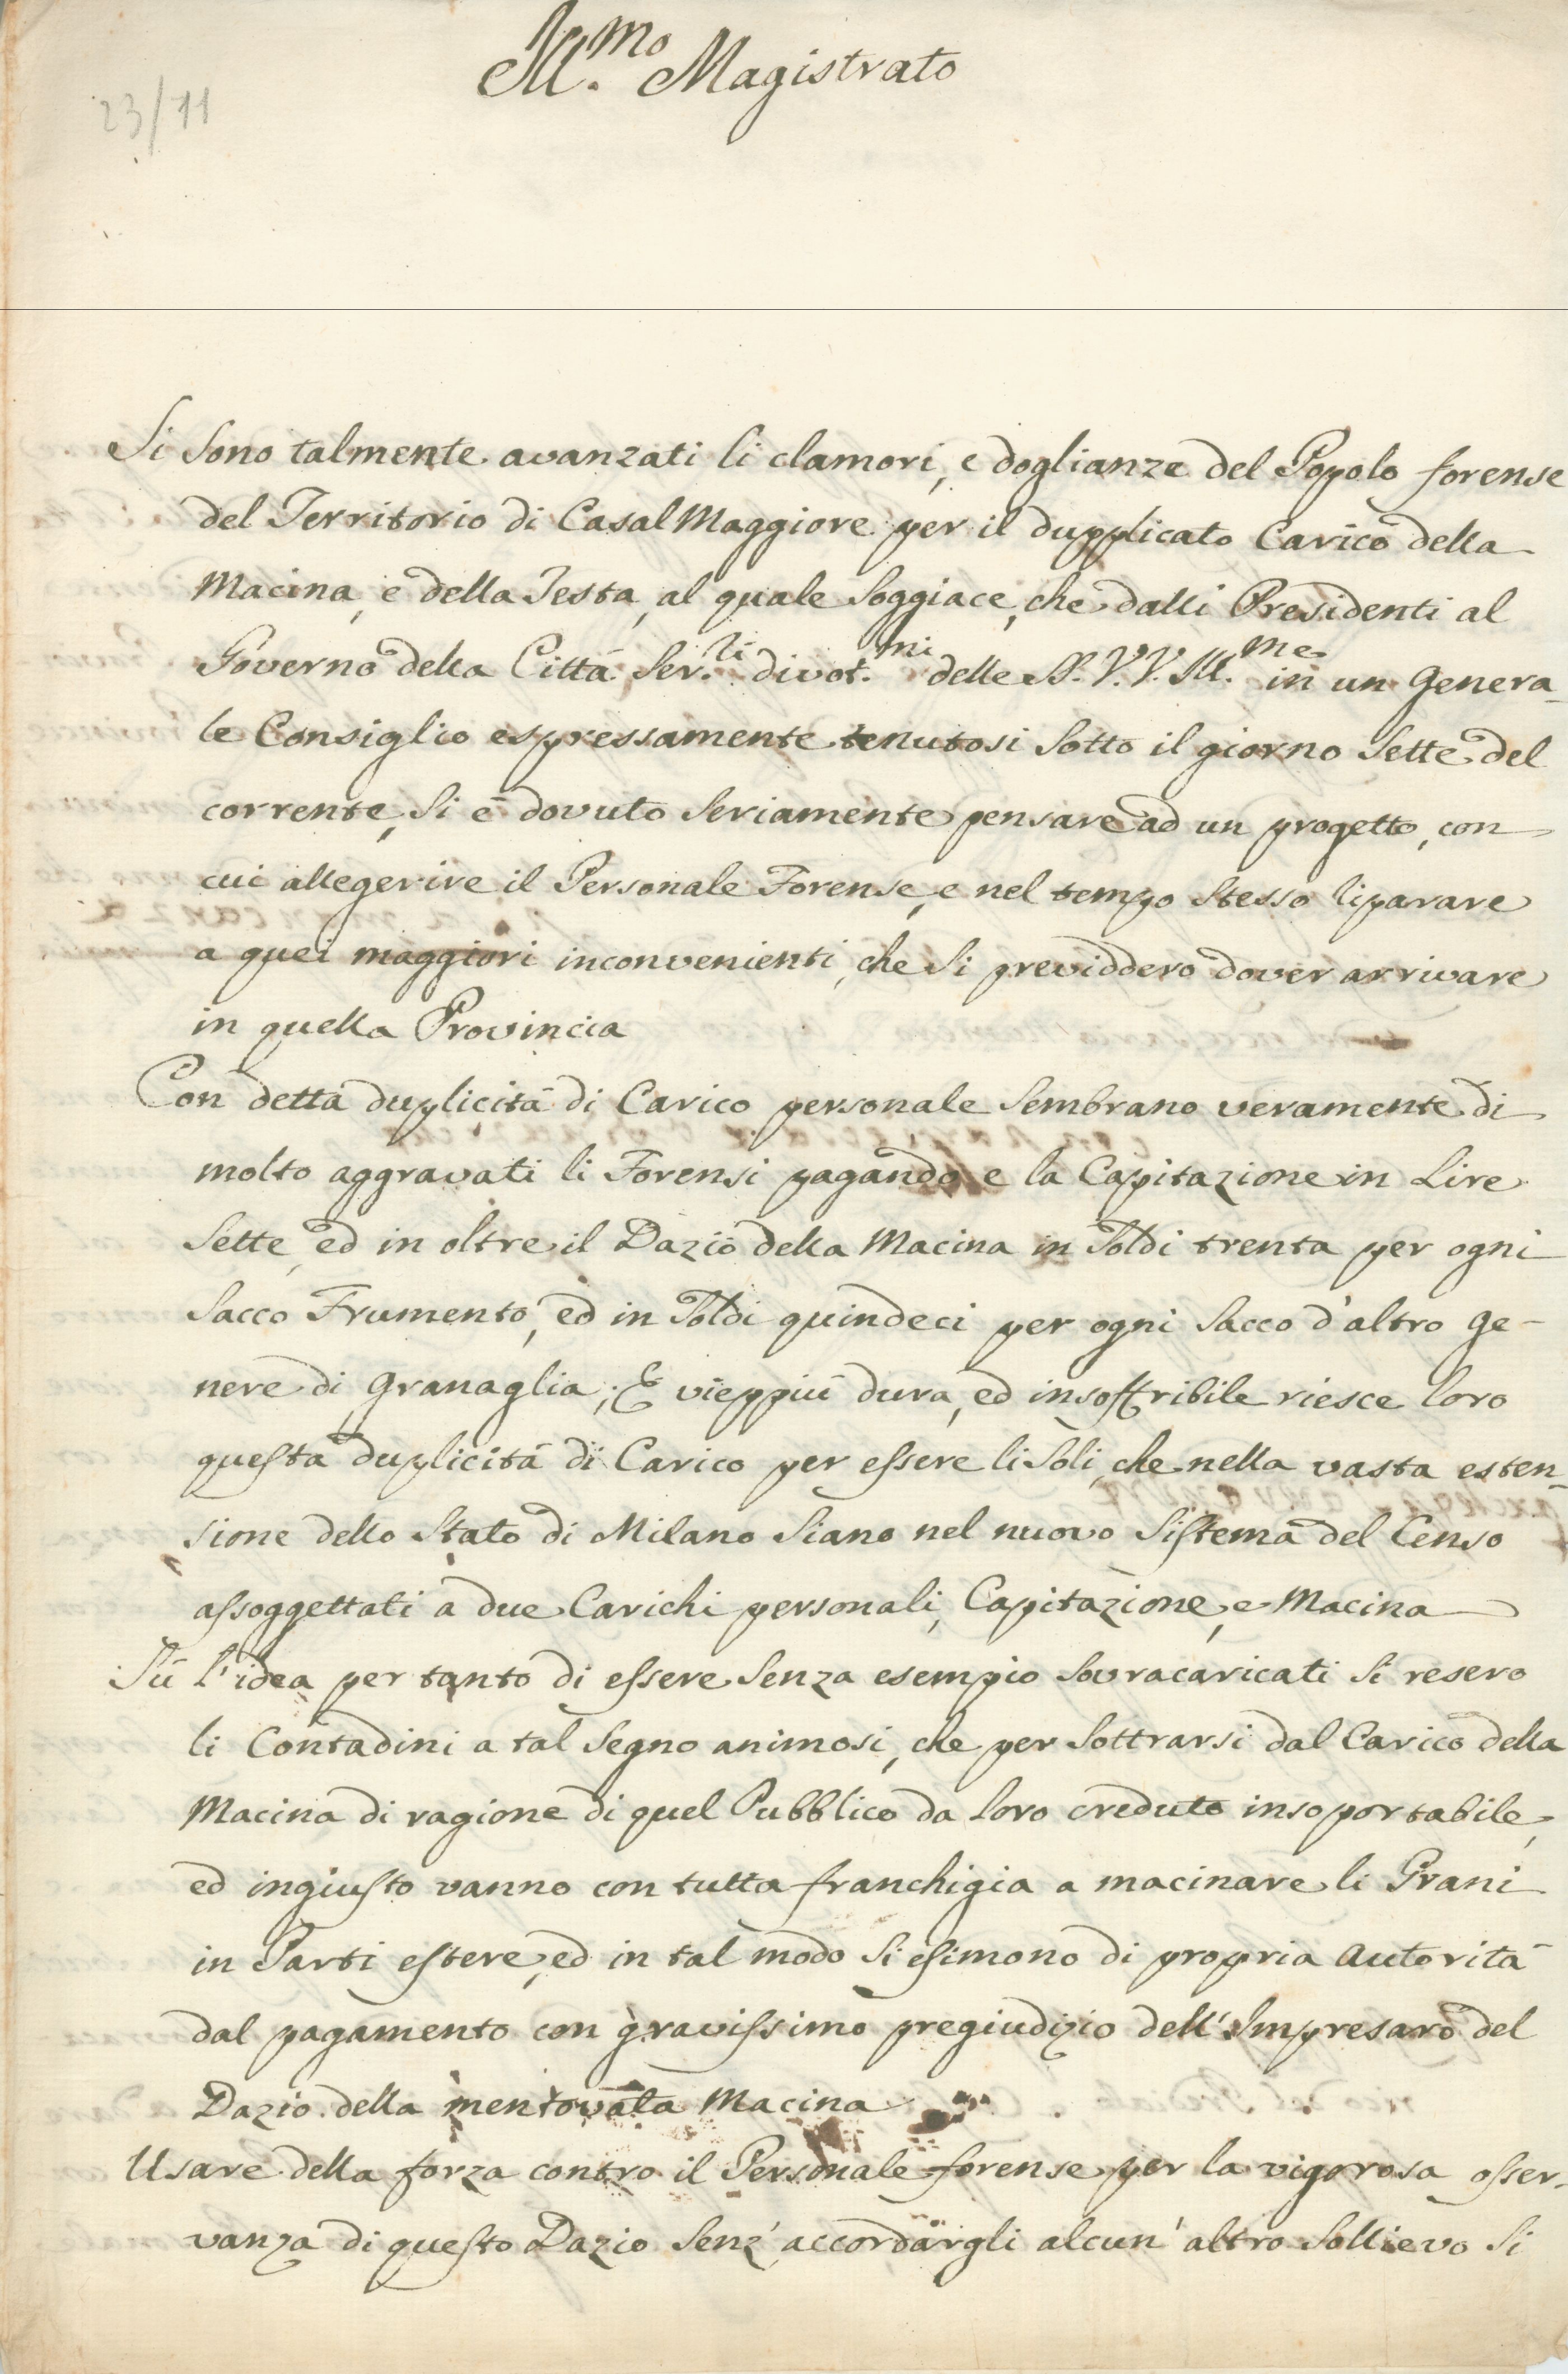 Ill.mo Magistrato
23/11
Si sono talmente avanzati li clamori, e doglianze del Popolo forense
del Territorio di CasalMaggiore per il dupplicato Carico della
Macina, e della Testa, al quale soggiace, che dalli Presidenti al
Governo della Città Ser.ti divot.mi delle SS. V.V. Ill.me in un Genera-
le Consiglio espressamente tenutosi sotto il giorno sette del
corrente, si è dovuto seriamente pensare ad un progetto, con
cui allegerire il Personale Forense, e nel tempo stesso riparare
a quei maggiori inconvenienti, che si previddero dover arrivare
in quella Provincia
Con detta duplicità di Carico personale sembrano veramente di
molto aggravati li Forensi pagando e la Capitazione in Lire
sette, ed in oltre il Dazio della Macina in Soldi trenta per ogni
Sacco Frumento, ed in Soldi quindeci per ogni Sacco d'altro ge-
nere di Granaglia; E vieppiù dura, ed insoffribile riesce loro
questa duplicità di Carico per essere li soli, che nella vasta esten-
sione dello Stato di Milano siano nel nuovo Sistema del Censo
assoggettati a due Carichi personali, Capitazione, e Macina
Sù l'idea per tanto di essere senza esempio sovracaricati si resero
li Contadini a tal segno animosi, che per sottrarsi dal Carico della
Macina di ragione di quel Pubblico da loro creduto insoportabile,
ed ingiusto vanno con tutta franchigia a macinare li Grani
in Parti estere, ed in tal modo si esimono di propria autorità
dal pagamento con gravissimo pregiudizio dell'Impresaro del
Dazio della mentovata Macina
Usare della forza contro il Personale forense per la vigorosa osser-
vanza di questo Dazio senz'accordargli alcun'altro sollievo si